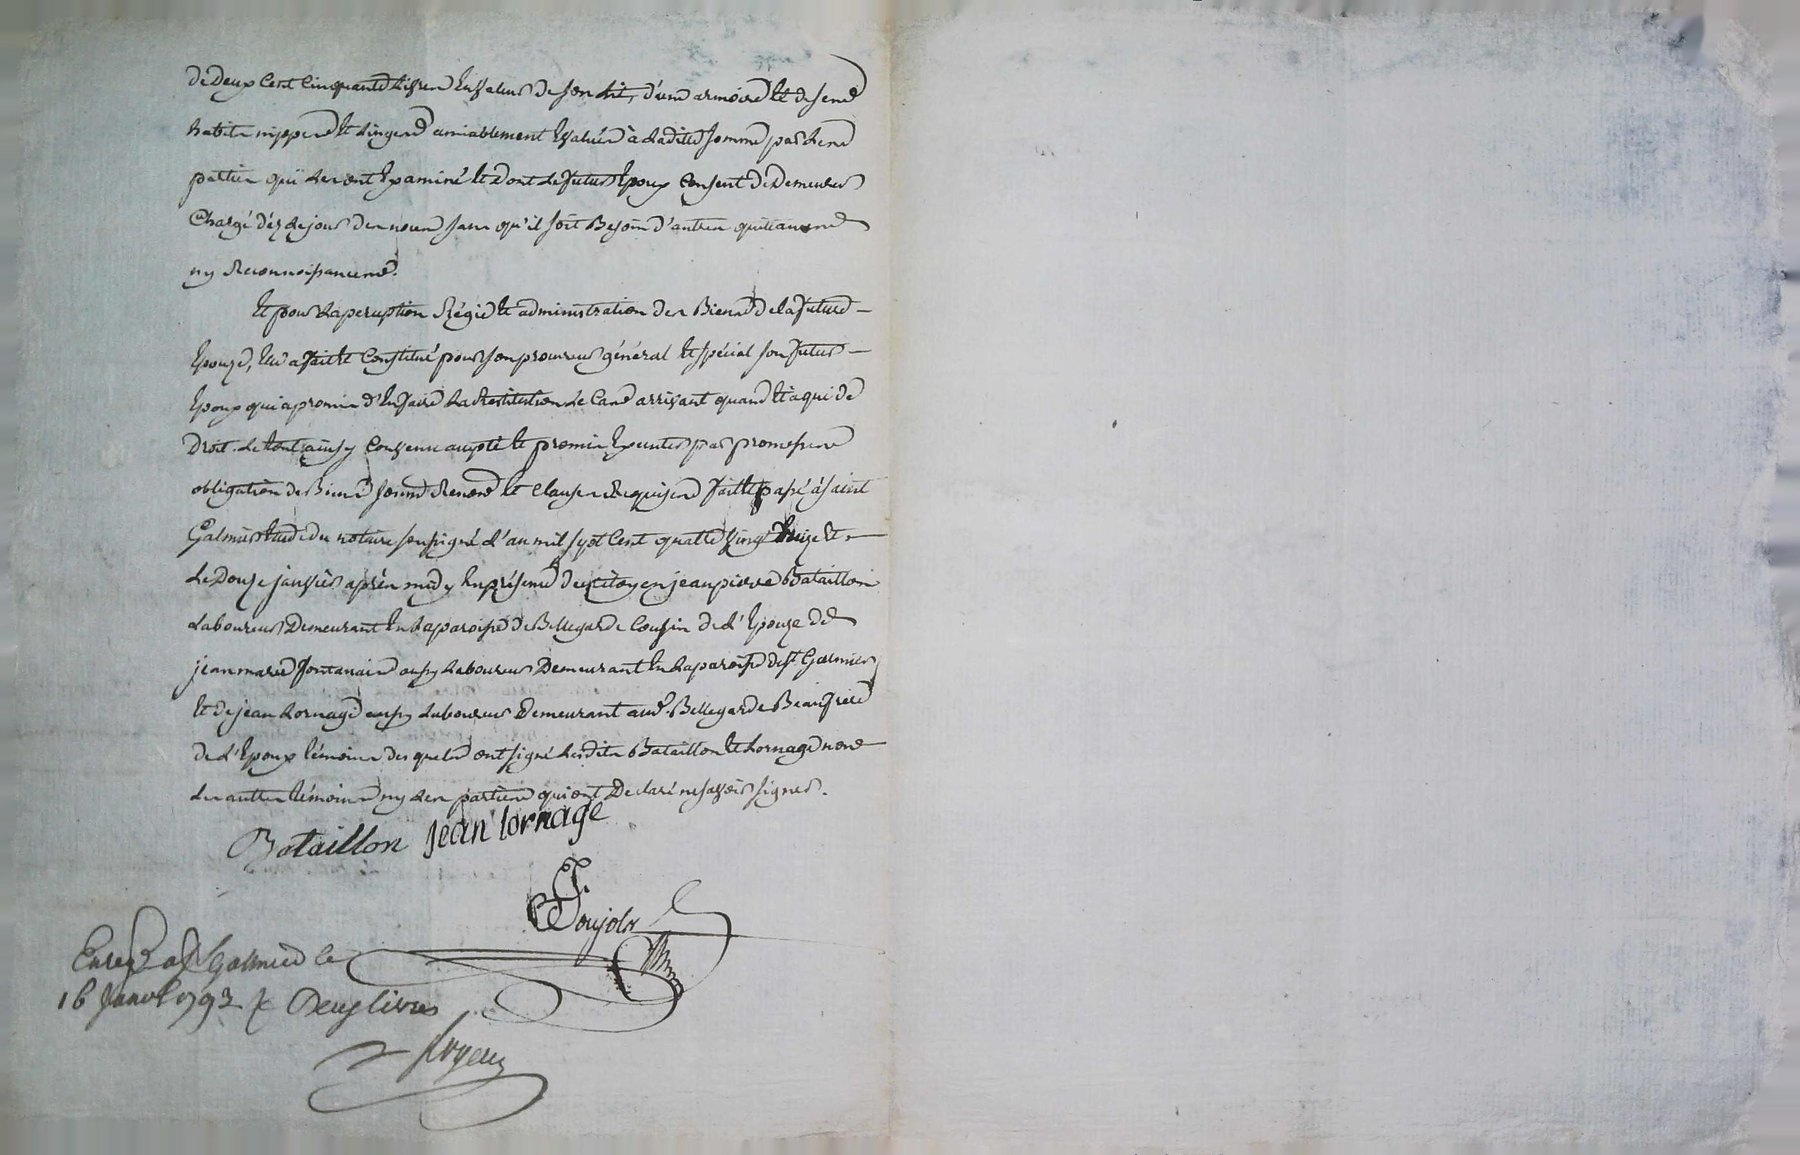 de Deux Cent Cinquante Livres En Valeur de son Lit, d'une armoire Et de ses
habits nippes Et Linges amiablement Evalués à Ladite somme par Les
parties qui Les ont Examiné Et Dont Le futur Epoux Consent de Demeurer
Chargé dés Le jour des noces sans qu'il soit Besoin d'autres quittances
ny Reconnoissances.
Et pour La perception Régie Et administration des Biens de la future
Epouze, Elle a fait Et Constitué pour son procureur général Et spécial son futur
Epoux qui a promis d'En faire La Restitution Le Cas arrivant quand Et à qui de
Droit. Le tout ainsy Convenu accepté Et promis Executer par promesses
obligation de Biens soumis Renon Et Clauses Requises fait Et passé à saint
Galmier Etude du notaire soussigné L'an mil sept Cent quatre Vingt treize Et
Le Douze janvier aprés midy En présence de citoyen jean pierre Bataillon
Laboureur Demeurant En La paroisse de Bellegarde Cousin de L'Epouze de
jean marie fontanais aussy Laboureur Demeurant En La paroisse de St Galmier
Et de jean Lornage aussy Laboureur Demeurant aud. Bellegarde Beaufrere
de L'Epoux témoins des quels ont signé Lesdits Bataillon Et Lornage non
Les autres témoins ny Les parties qui ont Declaré ne savoir signer.
Bataillon jean lornage
Soujols
Enreg a St Galmier le
16 Janv 1793 R Deux livres